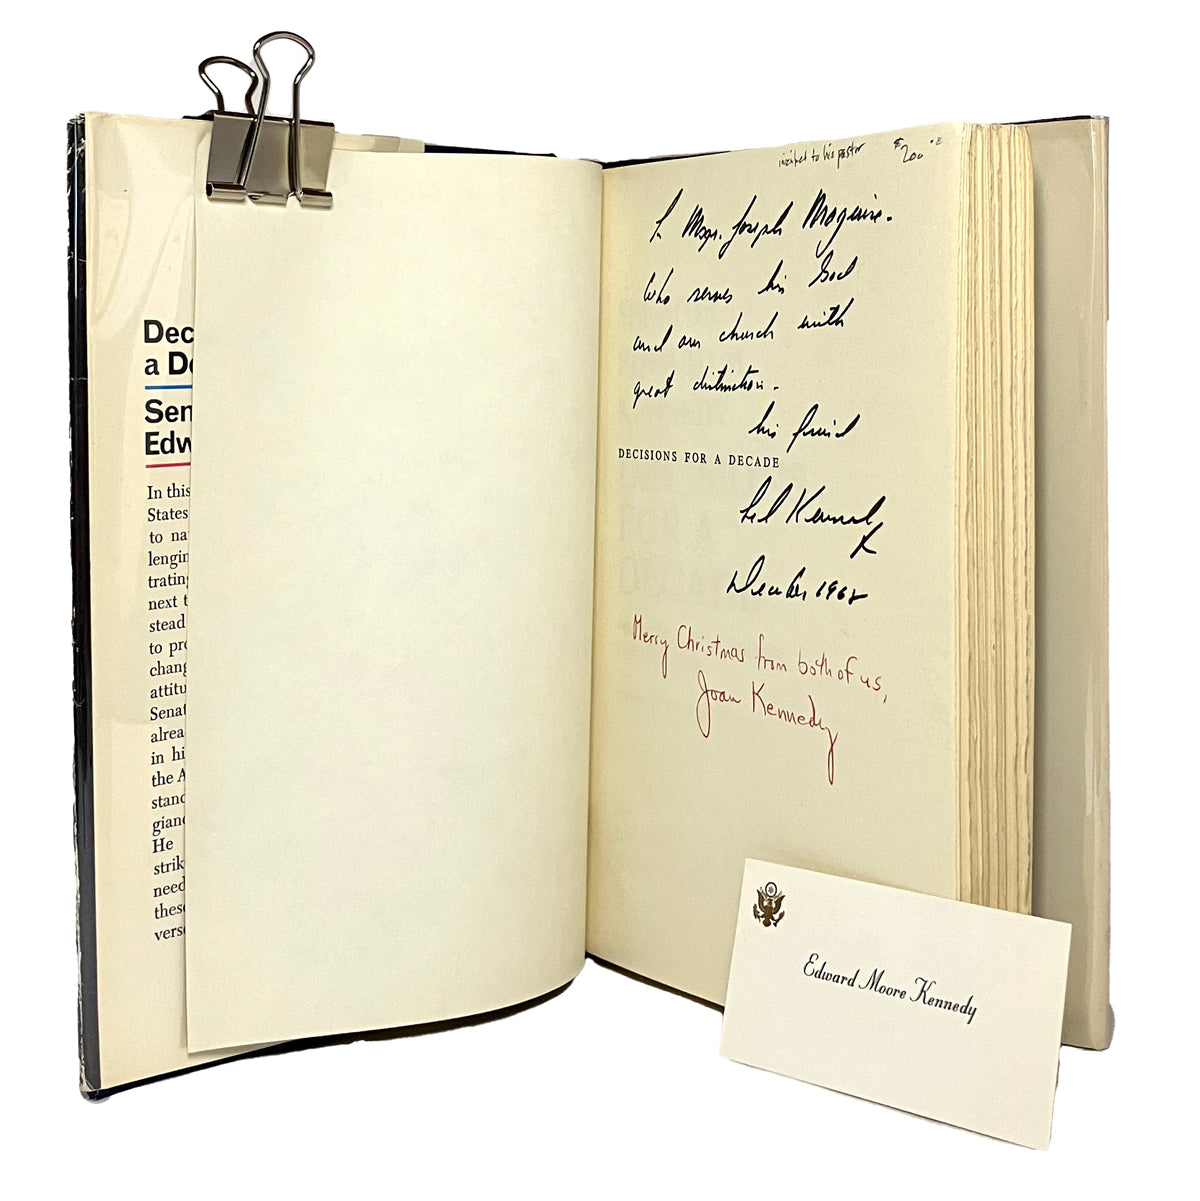 Dec
a De
Sen
Edw
In this
States
to na
lengin
trating
next t
stead
to pro
chang
attitu
Senat
alrea
in hi
the A
stand
gianc
He
strik
need
these
vers
inscribed to his pastor $200.00
To Msgr. Joseph Maguire -
Who serves his God
and our church with
great distinction -
his friend
DECISIONS FOR A DECADE
Ted Kennedy
December 1968
Merry Christmas from both of us,
Joan Kennedy
Edward Moore Kennedy